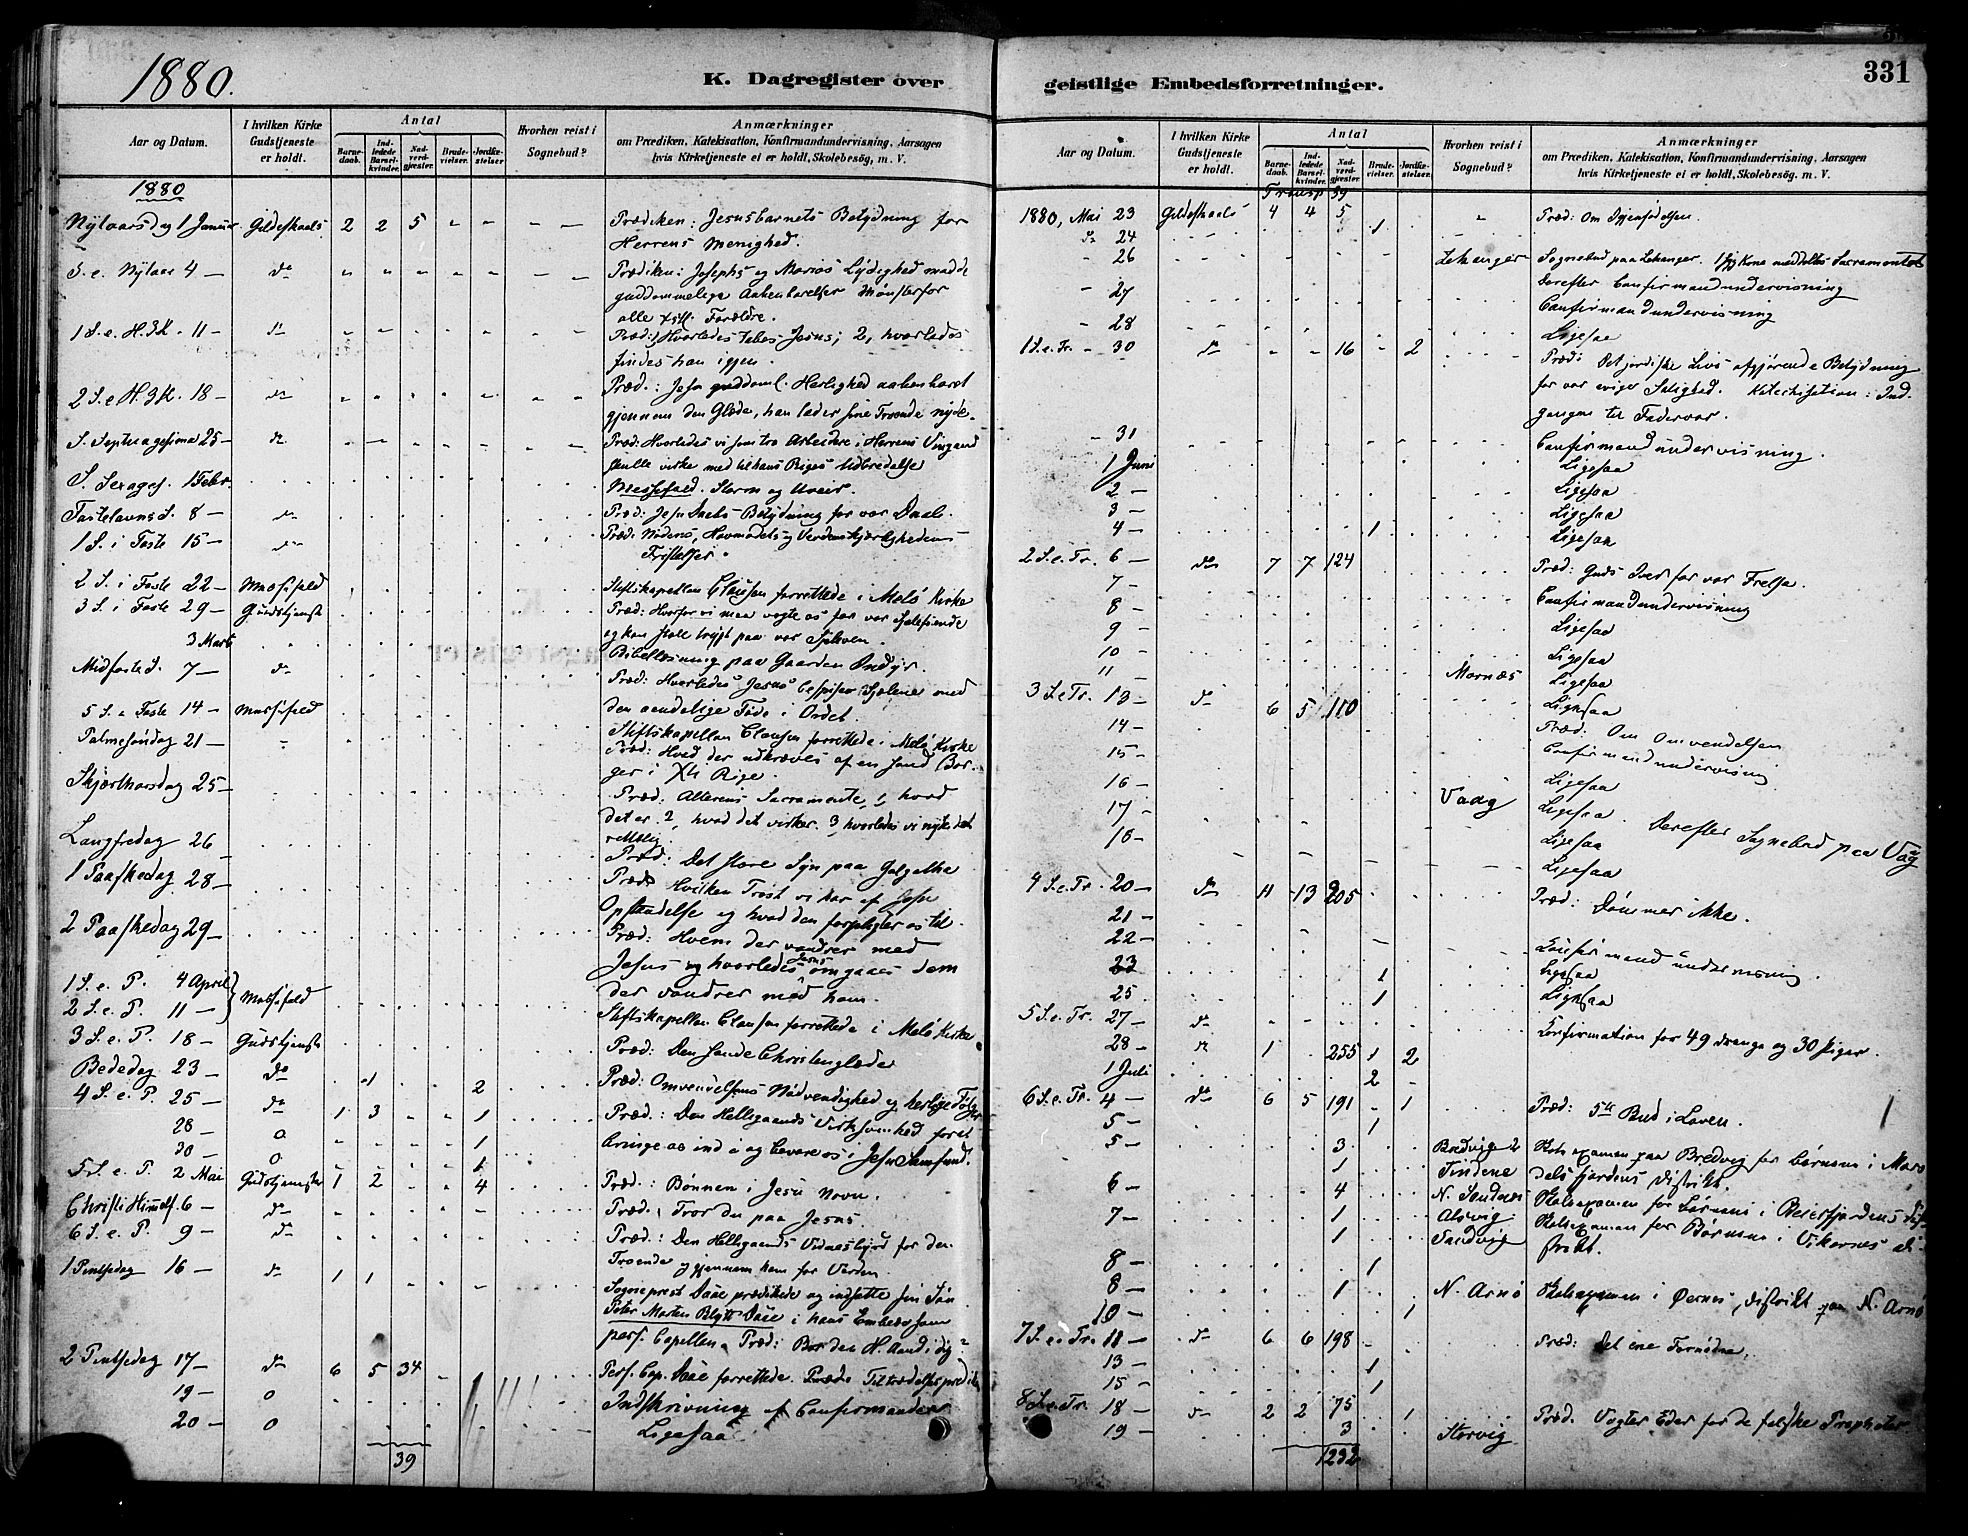 1880.
K. Dagregister over
geistlige Embedsforretninger.
331
Aar og Datum.
I hvilken Kirke Gudstjeneste er holdt.
Antal
Barnedaab.
Indledede Barselkvinder.
Nadverdgjester.
Brudevielser.
Jordfæstelser
Hvorhen reist i Sognebud?
Anmærkninger
om Prædiken, Katekisation, Konfirmandundervisning, Aarsagen
hvis Kirketjeneste ei er holdt, Skolebesög, m. V.
1880
Nytaarsdag 1 Januar Gildeskaals 2 2 5 Prædiken: Jesusbarnets Betydning for
Herrens Menighed.
S. e. Nytaar 4 — do Prædiken: Josephs og Marias Lydighed mod de
guddommelige Aabenbarelser Mønster for
alle Forældre.
1 S. e. H. 3 K. 11 — do Præd: Hvorledes tabes Jesus; 2, hvorledes
findes han igjen.
2 S. e. H. 3 K. 18 — do Præd.: Jesu guddoml. Herlighed aabenbaret
gjennem den Glæde, han lader sine Troende nyde.
S. Septuagesima 25 — do Præd: Hvorledes vi som tro Arbeidere i Herrens Vingaard
skulle virke med til hans Riges Udbredelse
S. Sexages. 1 Febr. Messefald. Storm og Uveir.
Fastelavns S. 8 — do Præd: Jesu Daabs Betydning for vor Daab.
1 S. i Faste 15 — do Præd: Nødens, Hovmodets og Verdenskjærlighedens
Fristelser.
2 S. i Faste 22 — Messefald Stiftskapellan Clausen forrettede i Melø Kirke
3 S. i Faste 29 — Gudstjenst Præd: Hvorfor vi maa vogte os for vor Sjælefiende
og kan stole trygt paa vor
3 Marts Bibellæsning paa Gaarden Indyr.
Midfaste S. 7 — do Præd: Hvorledes Jesus bespiser Sjælene med
den aandelige Føde i Ordet.
5 S. i Faste 14 — Messefald Stiftskapellan Clausen forrettede i Melø Kirke
Palmesøndag 21 — Præd: Hvad der udkræves af en sand Bor-
ger i Rige.
Skjærthorsdag 25 — Præd: Alterens Sacramente, 1, hvad
det er. 2, hvad det virker. 3, hvorledes vi nyde det
rettelig.
Langfredag 26 Præd: Det store Syn paa Golgatha
1 Paaskedag 28 — Præd: Hvilken Trøst vi har af Jesu
Opstandelse og hvad den forpligter os til.
2 Paaskedag 29 — Præd: Hvem der vandrer med
Jesus og hvorledes Jesus omgaaes dem
der vandrer med ham.
1 S. e. P. 4 April
2 S. e. P. 11 — Messefald Stiftskapellan Clausen forrettede i Melø Kirke
3 S. e. P. 18 — Gudstjenste Præd: Den sande Christenglæde
Bededag 23 — do 1 2 Præd: Omvendelsens Nødvendighed og herlige Følger
4 S. e. P. 25 — do 1 3 1 Præd.: Den Helligaands Virksomhed for at
28 — 0 1 bringe os ind i og bevare os i Jesu Samfund.
30 — 0 1
5 S. e. P. 2 Mai Gudstjenste 1 2 4 Præd.: Bønnen i Jesu Navn.
Christi Himmelf. 6 — do Præd: Tror du paa Jesus.
6 S. e. P. 9 — do Præd.: Den Helligaands Vidnesbyrd for de
Troende og gjennem ham for Verden.
1 Pintsedag 16 — do 1 1 Sogneprest Daae prædikede og indsatte sin Søn
Peter Morten Blytt Daae i hans Embede som
pers. Capellan. Præd: Bor den H. Aand i dig?
2 Pintsedag 17 — do 6 5 34 Pers. Cap. Daae forrettede. Præd: Tiltrædelsesprediken
19 — 0 Indskrivning af Confirmander
20 — 0 Ligesaa
39
Aar og Datum.
I hvilken Kirke Gudstjeneste er holdt.
Antal
Barnedaab.
Indledede Barselkvinder.
Nadverdgjester.
Brudevielser.
Jordfæstelser.
Hvorhen reist i Sognebud?
Anmærkninger
om Prædiken, Katekisation, Konfirmandundervisning, Aarsagen
hvis Kirketjeneste ei er holdt, Skolebesög. m. V.
Transp 39
1880, Mai 23 Gildeskaals 4 4 5 Præd: Om Igjenfødelsen.
do 24 1
26 Lekanger Sognebud paa Lekanger. 1 syg Kone meddeltes Sacramentet
Derefter Confirmandundervisning
27 Confirmandundervisning
28 Ligesaa
1 S. e. Tr. 30 do 16 2 Præd: Det jordiske Livs afgjørende Betydning
for vor evige Salighed. Katechisation: Ind-
gangen til Fadervor.
31 Confirmandundervisning.
1 Juni Ligesaa
2 — Ligesaa
3 — Ligesaa
4 — 1 Ligesaa
2 S. e. Tr. 6 — do 7 7 124 Præd: Guds Iver for vor Frelse.
7 — Confirmandundervisning
8 — Ligesaa
9 — Ligesaa
10 — Ligesaa
11 — Mornæs Ligesaa
3 S. e. Tr. 13 — do 6 5 110 Præd: Om Omvendelsen
14 — Confirmandundervisning
15 — Ligesaa
16 — Ligesaa
17 — Vaag Ligesaa. Derefter Sognebud paa Vaag
18 — Ligesaa
4 S. e. Tr. 20 — do 11 13 205 Præd: Dømmer ikke.
21 —
22 — Confirmandundervisning.
23 1 Ligesaa
25 1 Ligesaa
5 S. e. Tr. 27 — do
28 — do 1 255 1 2 Confirmation for 49 Drenge og 30 Piger.
1 Juli 2
6 S. e. Tr. 4 — do 6 5 191 1 Præd: 5te Bud i Loven.
5 — 1
5 — 3 Bredvig Skoleexamen paa Bredvig for børnene i Mor-
1 Findene dalsfjordens Distrikt.
6 — 4 N. Sandnes Skoleexamen for Børnene i Beierfjordens Di-
7 — 1 Alsvig Skoleexamen for Børnene i Vikornes Di-
1 Sandvig strikt.
8 — 1
8 — 1 N. Arnø Skoleexamen i Øernes Distrikt paa N. Arnø
10 — 1
7 S. e. Tr. 11 — do 6 6 198 Præd: Det ene Fornødne.
13 — 1
15 — 1
8 S. e. Tr. 18 — do 2 2 75 1 Præd. Vogter Eder for de falske Propheter
19 — 3 Storvig
1232